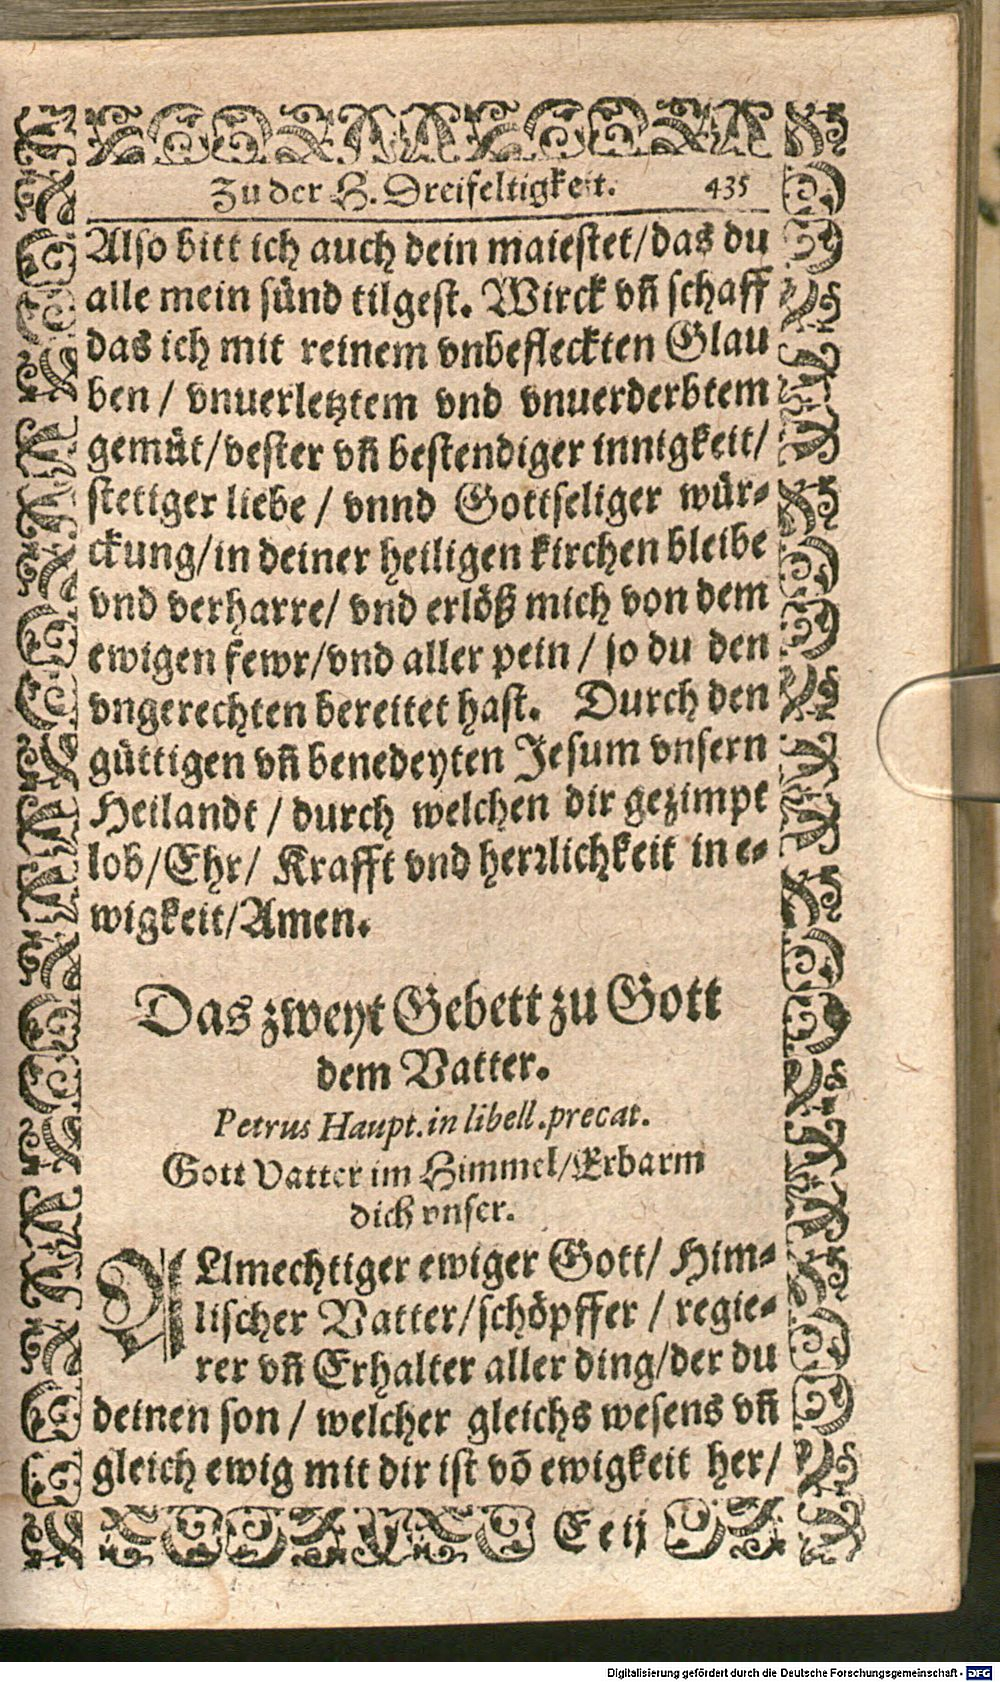 Zu der H. Dreifeltigkeit. 435
Also bitt ich auch dein maiestet/das du
alle mein sünd tilgest. Wirck vñ schaff
das ich mit reinem vnbefleckten Glau
ben / vnuerletztem vnd vnuerderbtem
gemüt/vester vñ bestendiger innigkeit/
stetiger liebe / vnnd Gottseliger wür-
ckung/in deiner heiligen kirchen bleibe
vnd verharre/ vnd erlöß mich von dem
ewigen fewr/vnd aller pein / so du den
vngerechten bereitet hast. Durch den
güttigen vñ benedeyten Jesum vnsern
Heilandt / durch welchen dir gezimpt
lob/Ehr/ Krafft vnd herrlichkeit in e-
wigkeit/Amen.
Das zweyt Gebett zu Gott
dem Vatter.
Petrus Haupt. in libell. precat.
Gott Vatter im Himmel/Erbarm
dich vnser.
ALlmechtiger ewiger Gott/ Him-
lischer Vatter/schöpffer / regie-
rer vñ Erhalter aller ding/der du
deinen son / welcher gleichs wesens vñ
gleich ewig mit dir ist võ ewigkeit her/
E e ij
Digitalisierung gefördert durch die Deutsche Forschungsgemeinschaft - DFG